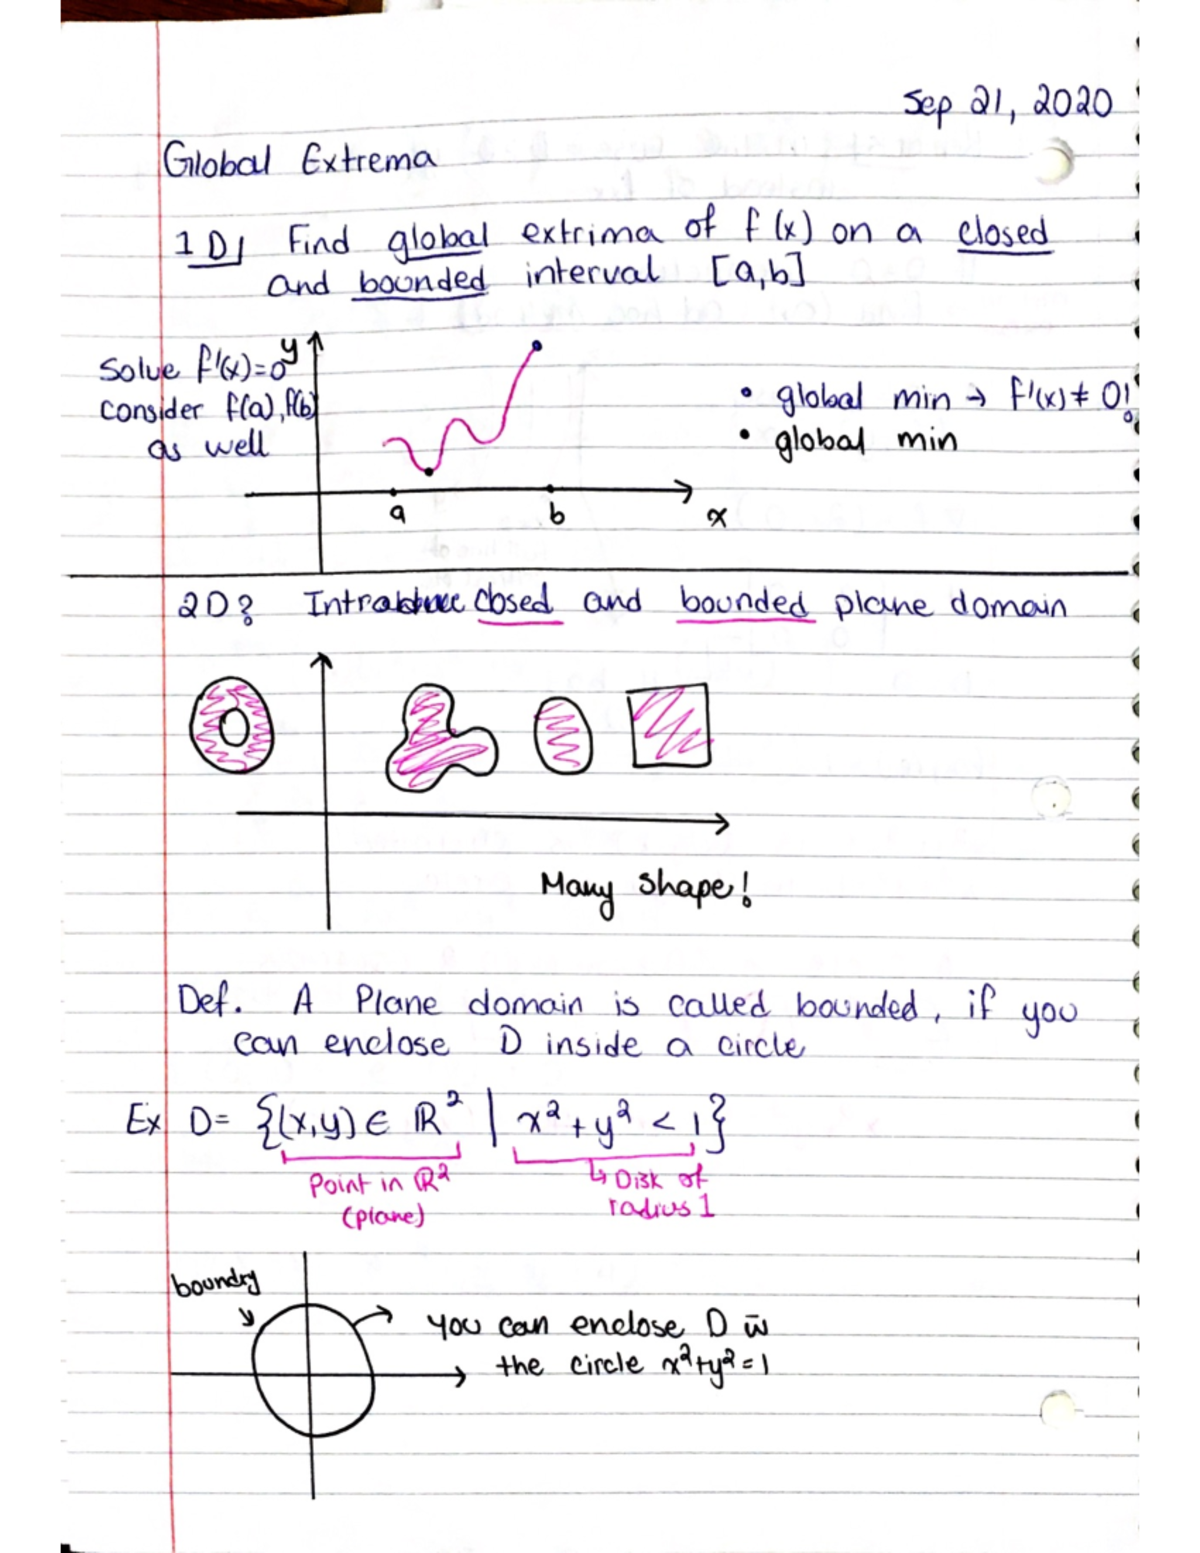 Sep 21, 2020
Global Extrema
1D| Find global extrima of f(x) on a closed
and bounded interval [a,b]
Solve f'(x)=0
consider f(a), f(b)
as well
y
• global min → f'(x) ≠ 0!
• global min
a b x
2D? closed and bounded plane domain
Many shape!
Def. A Plane domain is called bounded, if you
can enclose D inside a circle
Ex D= {(x,y) ∈ ℝ² | x²+y² < 1}
Point in ℝ²
(plane)
↳ Disk of
radius 1
boundry
you can enclose D w̄
the circle x²+y²=1